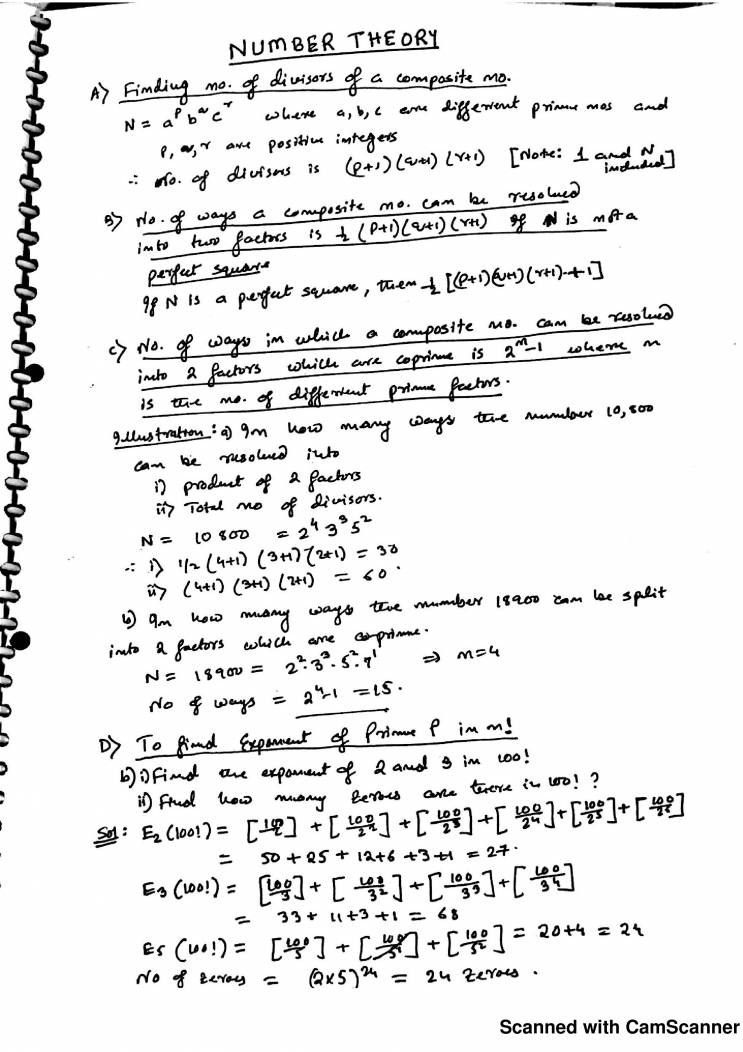 NUMBER THEORY
A) Finding no. of divisors of a composite no.
N = a^p b^q c^r where a, b, c are different prime nos and
p, q, r are positive integers
∴ No. of divisors is (p+1) (q+1) (r+1) [Note: 1 and N included]
B) No. of ways a composite no. can be resolved
into two factors is ½ (p+1) (q+1) (r+1) if N is not a
perfect square
If N is a perfect square, then ½ [(p+1) (q+1) (r+1) + 1]
C) No. of ways in which a composite no. can be resolved
into 2 factors which are coprime is 2^n-1 where n
is the no. of different prime factors.
Illustration: a) In how many ways the number 10,800
can be resolved into
i) product of 2 factors
ii) Total no of divisors.
N = 10800 = 2^4 3^3 5^2
∴ i) 1/2 (4+1) (3+1) (2+1) = 30
ii) (4+1) (3+1) (2+1) = 60.
b) In how many ways the number 18900 can be split
into 2 factors which are coprime.
N = 18900 = 2^2·3^3·5^2·7^1 ⇒ n=4
No of ways = 2^4-1 = 15.
D) To find Exponent of Prime P in n!
b) i) Find the exponent of 2 and 3 in 100!
ii) Find how many zeroes are there in 100! ?
Sol: E2 (100!) = [100/2] + [100/2^2] + [100/2^3] + [100/2^4] + [100/2^5] + [100/2^6]
= 50 + 25 + 12 + 6 + 3 + 1 = 27.
E3 (100!) = [100/3] + [100/3^2] + [100/3^3] + [100/3^4]
= 33 + 11 + 3 + 1 = 68
E5 (100!) = [100/5] + [100/5^2] = 20+4 = 24
No of zeroes = (2×5)^24 = 24 zeroes.
Scanned with CamScanner